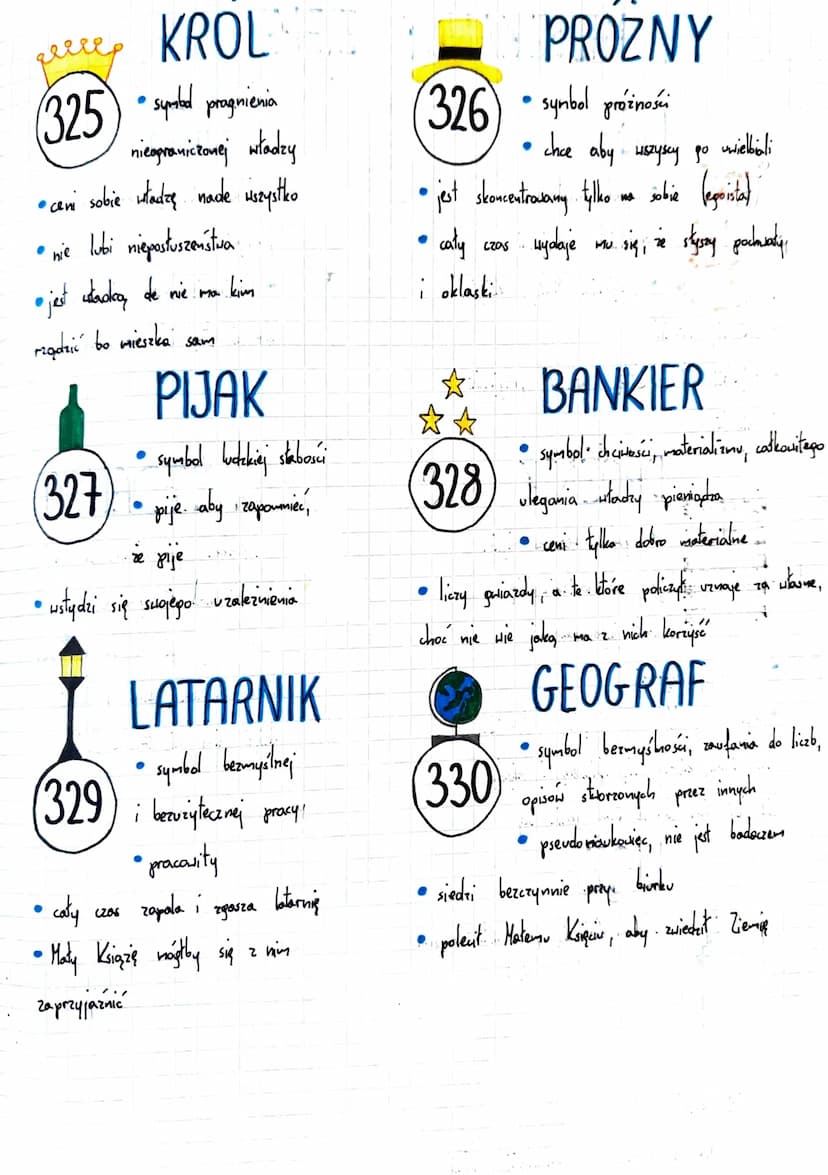 KRÓL
325
• symbol pragnienia
nieograniczonej władzy
• ceni sobie władzę nade wszystko
• nie lubi nieposłuszeństwa
• jest władcą, ale nie ma kim
rządzić bo mieszka sam
PRÓŻNY
326
• symbol próżności
• chce aby wszyscy go uwielbiali
• jest skoncentrowany tylko na sobie (egoista)
• cały czas wydaje mu się, że słyszy pochwały
i oklaski
PIJAK
327
• symbol ludzkiej słabości
• pije aby zapomnieć,
że pije
• wstydzi się swojego uzależnienia
BANKIER
328
• symbol chciwości, materializmu, całkowitego
ulegania władzy pieniądza
• ceni tylko dobro materialne
• liczy gwiazdy, a te które policzył uznaje za własne,
choć nie wie jaką ma z nich korzyść
LATARNIK
329
• symbol bezmyślnej
i bezużytecznej pracy
• pracowity
• cały czas zapala i zgasza latarnię
• Mały Książę mógłby się z nim
zaprzyjaźnić
GEOGRAF
330
• symbol bezmyślności, zaufania do liczb,
opisów stworzonych przez innych
• pseudonaukowiec, nie jest badaczem
• siedzi bezczynnie przy biurku
• polecił Małemu Księciu, aby zwiedził Ziemię